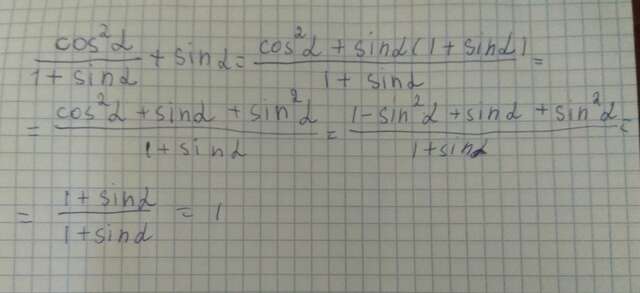 cos²α/(1 + sinα) + sinα = (cos²α + sinα(1 + sinα))/(1 + sinα) =
= (cos²α + sinα + sin²α)/(1 + sinα) = (1 - sin²α + sinα + sin²α)/(1 + sinα) =
= (1 + sinα)/(1 + sinα) = 1